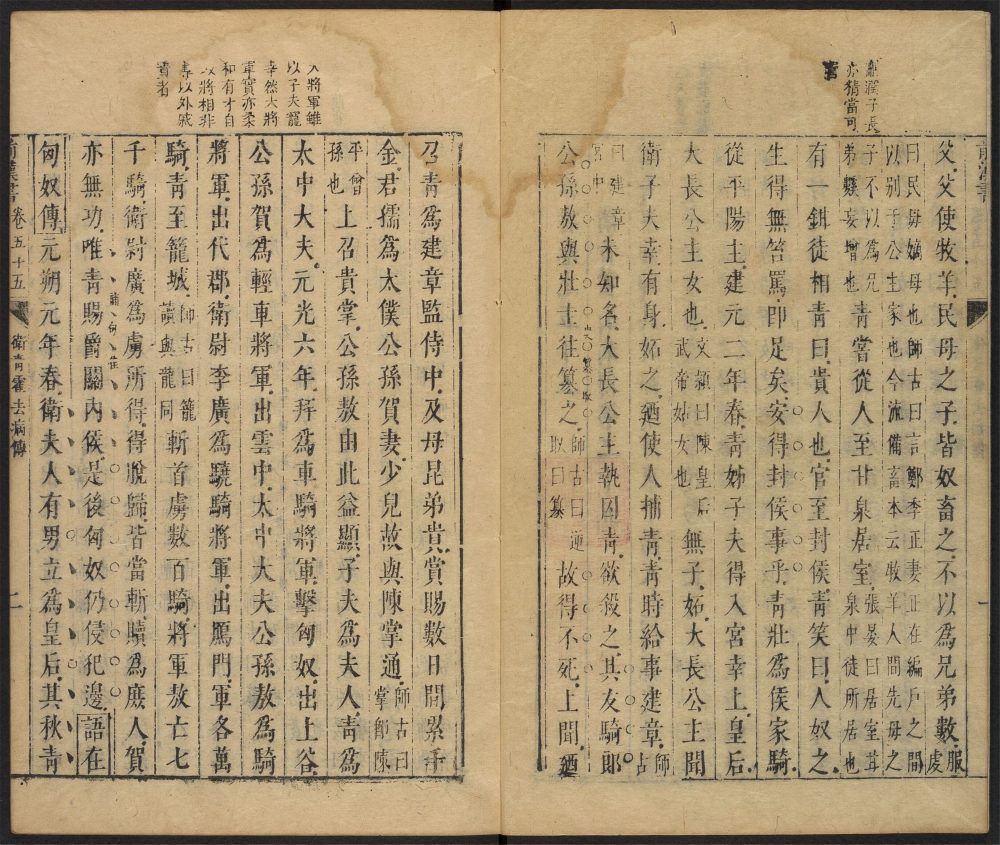 雖澤子長
亦猜當可
前漢書
父父使牧羊民母之子皆奴畜之不以爲兄弟數服虔
曰民母嫡母也師古曰言鄭季正妻正在編戶之間
以別于公主家也今流俗書本云牧羊人間先母之
子不以爲兄
弟數妄增也
青嘗從人至甘泉居室張晏曰居室甘
泉中徒所居也
有一鉗徒相青曰貴人也官至封侯青笑曰人奴之
生得無笞罵即足矣安得封侯事乎青壯爲侯家騎
從平陽主建元二年春青姊子夫得入宮幸上皇后
大長公主女也文穎曰陳皇后
武帝姑女也
無子妬大長公主聞
衛子夫幸有身妬之廼使人捕青青時給事建章師古
曰建章
宮中
未知名大長公主執囚青欲殺之其友騎郎
公孫敖與壯士往篡之師古曰逆
取曰篡
故得不死上聞廼
大將軍雖
以子夫寵
幸然大將
軍實亦柔
和有才自
將相非
專以外戚
貴者
召青爲建章監侍中及母昆弟貴賞賜數日間累千
金君孺爲太僕公孫賀妻少兒故與陳掌通師古曰
掌即陳
平曾
孫也
上召貴掌公孫敖由此益顯子夫爲夫人青爲
太中大夫元光六年拜爲車騎將軍擊匈奴出上谷
公孫賀爲輕車將軍出雲中太中大夫公孫敖爲騎
將軍出代郡衛尉李廣爲驍騎將軍出鴈門軍各萬
騎青至籠城師古曰籠
讀與龍同
斬首虜數百騎將軍敖亡七
千騎衛尉廣爲虜所得得脫歸皆當斬贖爲庶人賀
亦無功唯青賜爵關內侯是後匈奴仍侵犯邊語在
匈奴傳元朔元年春衛夫人有男立爲皇后其秋青
前漢書卷五十五
衛青霍去病傳
二